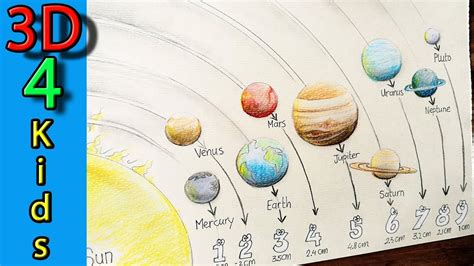 3D
4
Kids
Pluto
Uranus
Neptune
Mars
Venus
Jupiter
Earth
Saturn
Mercury
Sun
1 2 3 4 5 6 7 8 9
3.5cm 2.4 cm 4.8 cm 2.5 cm 3.2 cm 2.1 cm 1 cm